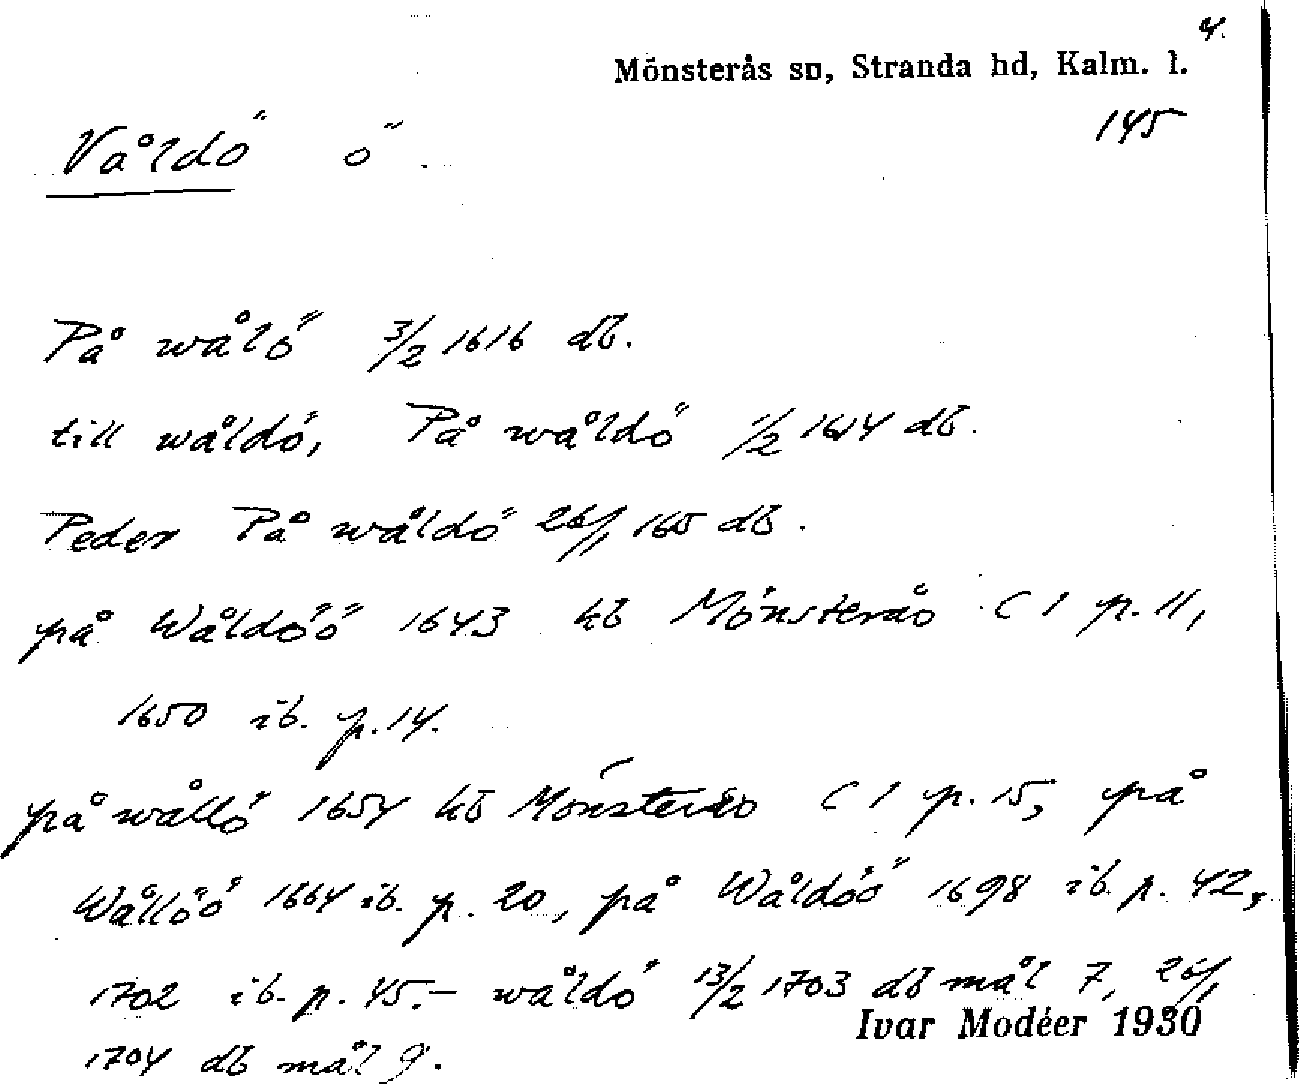 4.
Mönsterås sn, Stranda hd, Kalm. l.
145
Våldö ö.
På wålö 3/2 1616 db.
till wåldö, På wåldö 1/2 1614 db.
Peder På wåldö 26/1 165 db.
på Wåldöö 1643 kb Mönsterås C I p. 11,
1650 ib. p. 14.
på wållö 1654 kb Mönsterås C I p. 15, på
Wållöö 1664 ib. p. 20, på Wåldöö 1698 ib. p. 42,
1702 ib. p. 45. – wåldö 13/2 1703 db mål 7, 26/1
Ivar Modéer 1930
1704 db mål 9.